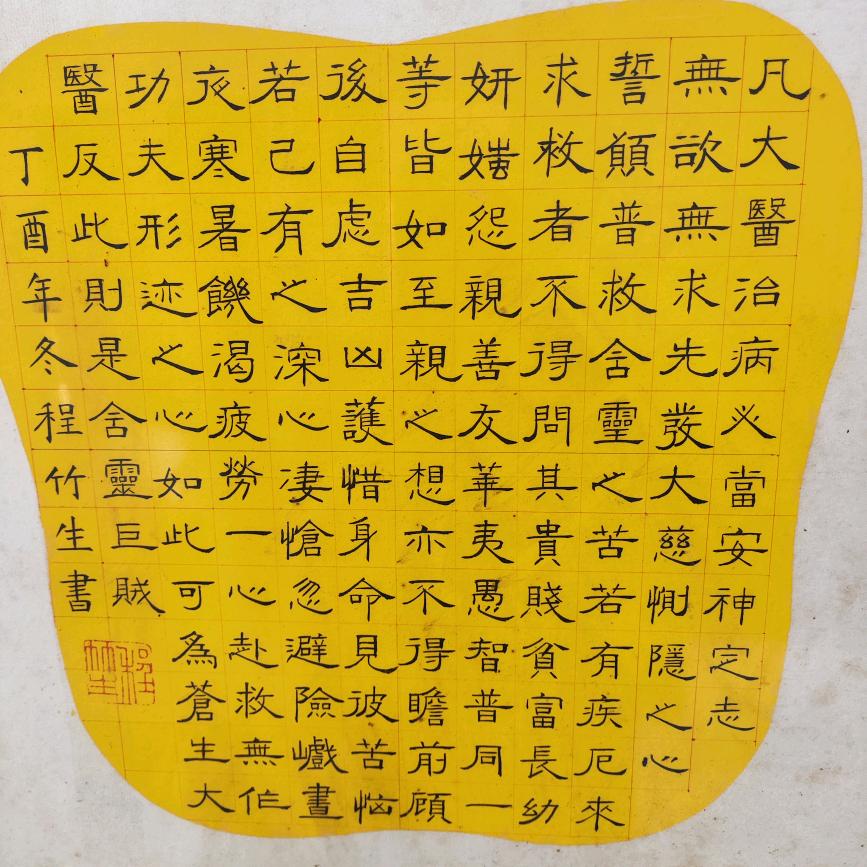 凡大醫治病必當安神定志
無欲無求先發大慈惻隱之心
誓願普救含靈之苦若有疾厄來
求救者不得問其貴賤貧富長幼
妍媸怨親善友華夷愚智普同一
等皆如至親之想亦不得瞻前顧
後自慮吉凶護惜身命見彼苦惱
若己有之深心凄愴忽避險巇晝
夜寒暑饑渴疲勞一心赴救無作
功夫形迹之心如此可為蒼生大
醫反此則是含靈巨賊
丁酉年冬程竹生書
程竹生